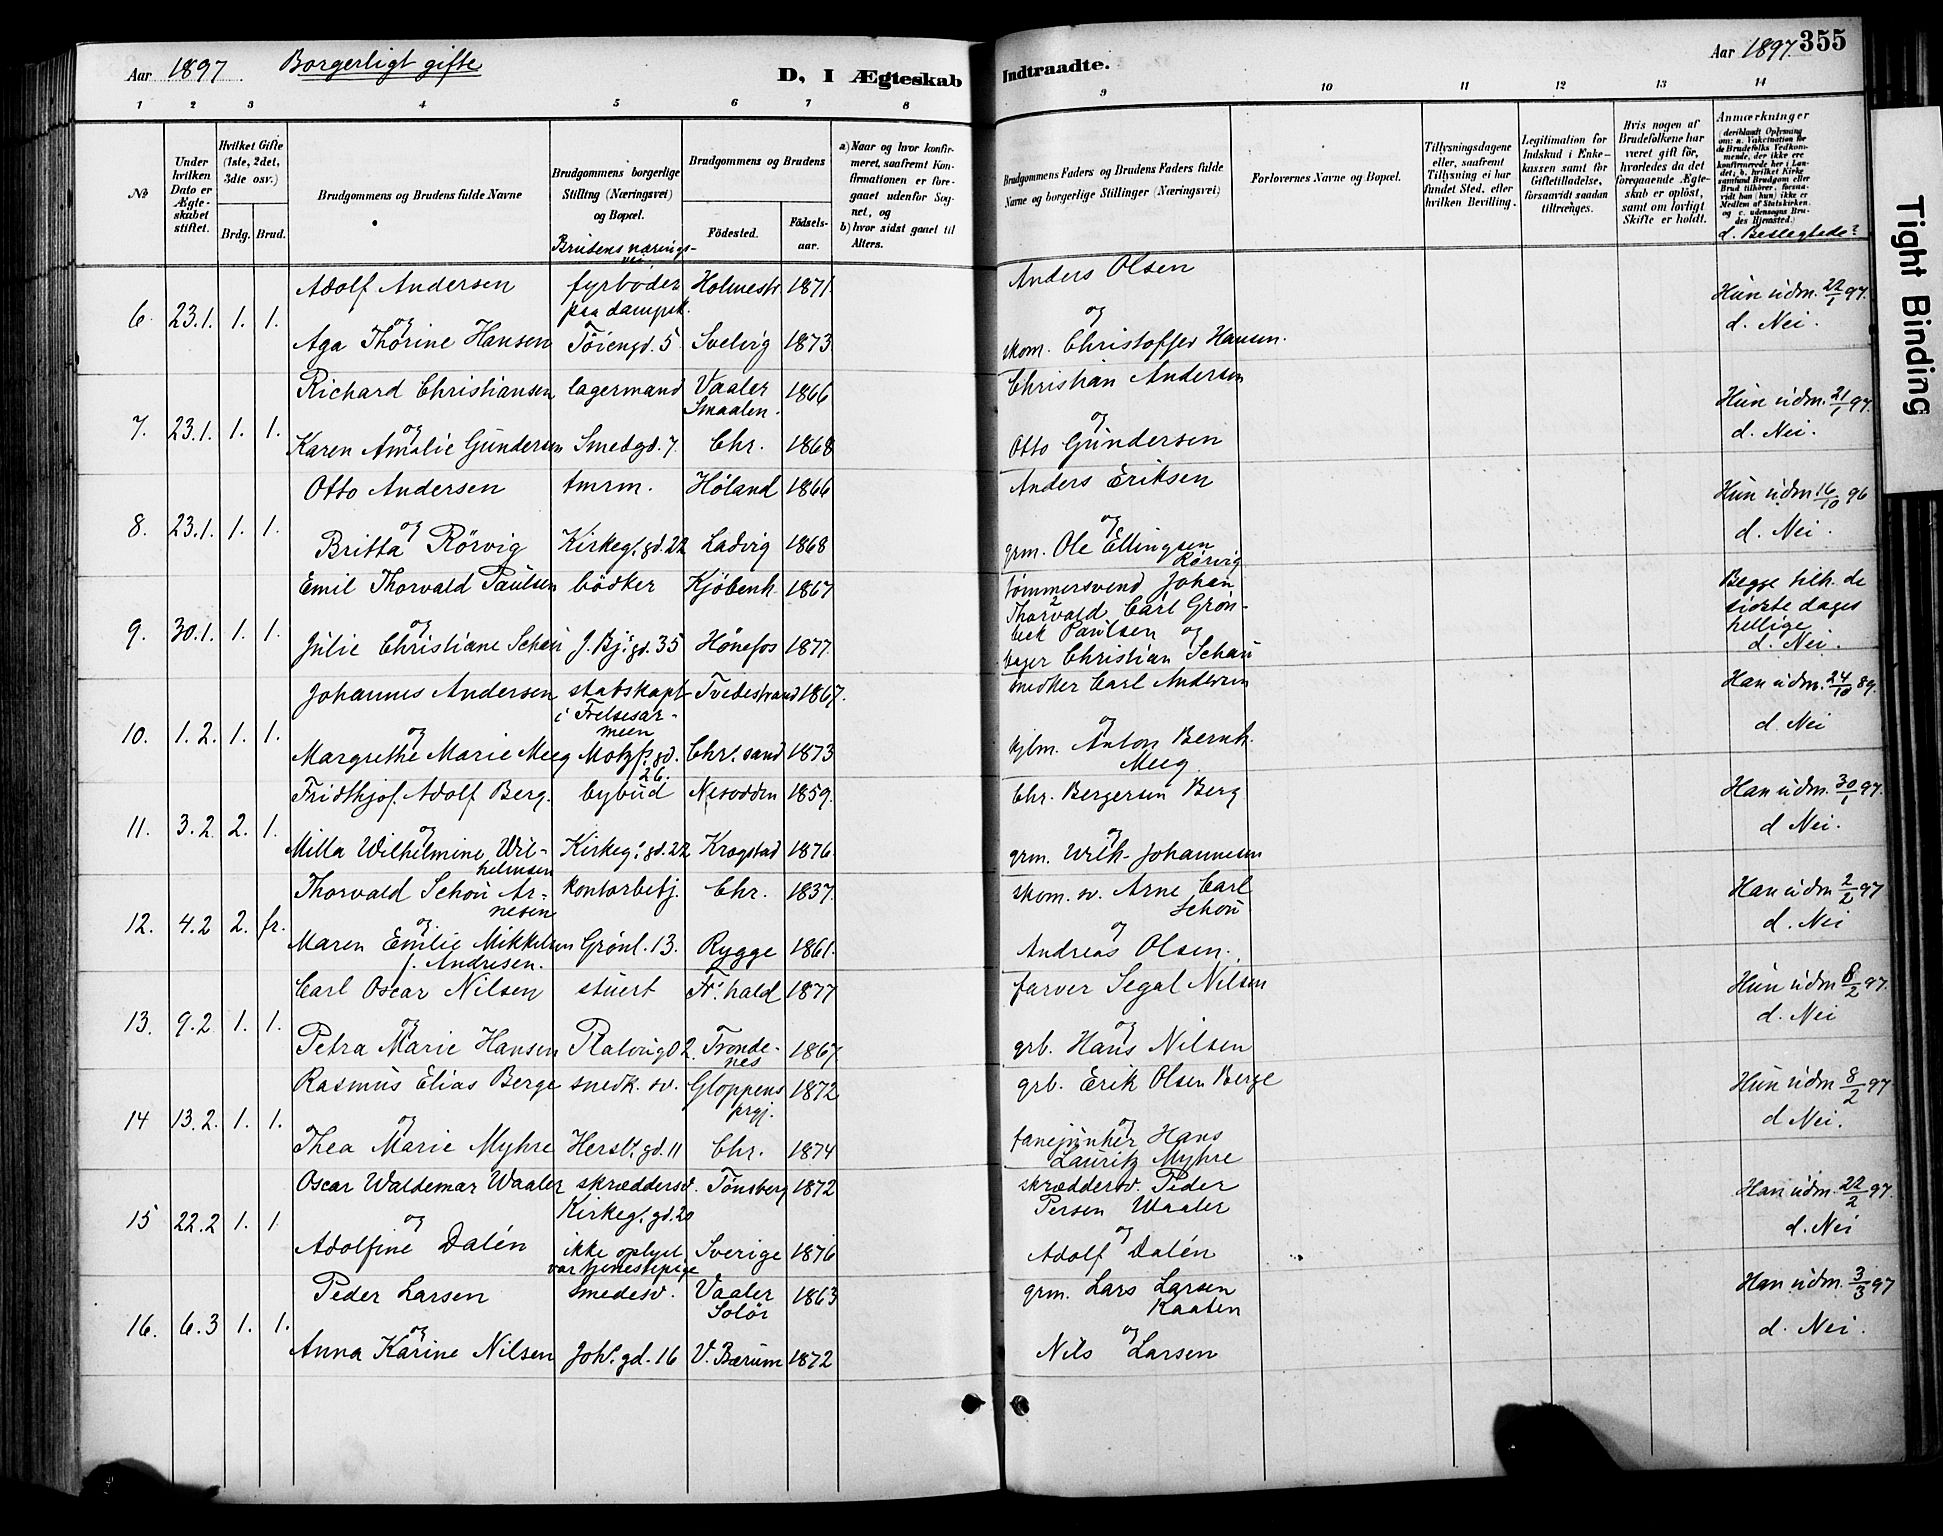 Aar 1897. Borgerligt gifte
D, I Ægteskab Indtraadte.
Aar 1897 355
Tight Binding
1 2 3 4 5 6 7 8 9 10 11 12 13 14
No
Under hvilken Dato er Ægteskabet stiftet.
Hvilket Gifte (1ste, 2det, 3die osv.)
Brdg. Brud.
Brudgommens og Brudens fulde Navne
Brudgommens borgerlige Stilling (Næringsvei) og Bopæl.
Brudens næringsvei
Brudgommens og Brudens
Födested.
Födselsaar.
a) Naar og hvor konfirmeret, saafremt Konfirmationen er foregaaet udenfor Sognet, og
b) hvor sidst gaaet til Alters.
Brudgommens Faders og Brudens Faders fulde Navne og borgerlige Stillinger (Næringsvei)
Forlovernes Navne og Bopæl.
Tillysningsdagene eller, saafremt Tillysning ei har fundet Sted, efter hvilken Bevilling.
Legitimation for Indskud i Enkekassen samt for Giftetilladelse, forsaavidt saadan tiltrænges.
Hvis nogen af Brudefolkene har været gift för, hvorledes da det foregaaende Ægteskab er oplöst, samt om lovligt Skifte er holdt.
Anmærkninger
(deriblandt Oplysning om: a. Vakcination for de Brudefolks Vedkommende, der ikke ere konfirmerede her i Landet; b. hvilket Kirkesamfund Brudgom eller Brud tilhörer, forsaavidt han (hun) ikke er Medlem af Statskirken, og c. udensogns Brudes Hjemsted.
d. Beslegtede?
Adolf Andersen fyrbøder Holmestr. 1871. Anders Olsen
paa dampsk.
6. 23.1. 1. 1. og og Hun udm. 22/1 97.
Aga Thorine Hansen Töiengd. 5 Svelvig 1873 skom. Christoffer Hansen. d. Nei.
Richard Christiansen lagermand Vaaler Smaalen. 1866 Christian Andersen
7. 23.1. 1. 1. og og Hun udm. 21/1 97.
Karen Amalie Gundersen Smedgd. 7. Chr. 1868 Otto Gundersen d. Nei.
Otto Andersen tmrm. Høland 1866 Anders Eriksen
8. 23.1. 1. 1. og og Hun udm 16/10 96
Britta Rörvig Kirkeg. gd. 22 Ladvig 1868 grm. Ole Ellingsen Rörvig d. Nei.
Emil Thorvald Paulsen bödker Kjöbenh. 1867 tömmersvend Johan Thorvald Carl Grönbeck Paulsen og
9. 30.1. 1. 1. og Begge tilh. de sidste dages hellige
Julie Christiane Schau J. Bj. gd. 35 Hønefos 1877. bager Christian Schau d. Nei.
Johannes Andersen stabskapt. i Frelsesarmeen Tvedestrand 1867. snedker Carl Andersen
10. 1.2. 1. 1. og og Han udm. 24/10 89.
Margrethe Marie Meeg Motzf. gd. 26. Chr. sand 1873 kjbm. Anton Bernh. Meeg d Nei
Fridthjof Adolf Berg. bybud Nesodden 1859. Chr. Bergersen Berg
11. 3.2. 2. 1. og og Han udm. 30/1 97.
Milla Wilhelmine Wilhelmsen Kirkeg. gd. 22 Kragstad 1876. grm. Wilh. Johannesen d Nei.
Thorvald Schou Arnesen kontorbetj. Chr. 1837. skom. sv. Arne Carl Schou
12. 4.2 2. fr. og og Han udm 2/2 97
Maren Emilie Mikkelsen f. Andresen. Grönl. 13. Rygge 1861. Andreas Olsen. d. Nei
Carl Oscar Nilsen stuert Fr. hald 1877 farver Segal Nilsen
13. 9.2. 1. 1. og og Hun udm 8/2 97.
Petra Marie Hansen Trondenes 1867. grb. Hans Nilsen d. Nei
Rasmus Elias Berge snedk. sv. Gloppens prgj. 1872 grb. Erik Olsen Berge
14 13.2. 1. 1. og og Hun udm 8/2 97
Thea Marie Myhre Hersl. gd. 11 Chr. 1874 fanejunker Hans Lauritz Myhre d Nei.
Oscar Waldemar Waaler skræddersv. Kirkeg. gd. 20 Tönsberg 1872 skræddersv. Peder Persen Waaler
15 22.2 1. 1 og og Han udm. 22/2 97.
Adolfine Dalén ikke oplyst var tjenestepige Sverige 1876 Adolf Dalén d. Nei
Peder Larsen smedesv. Vaaler Solör 1863 grm. Lars Larsen Kaaten
16. 6.3 1. 1. og og Han udm. 3/3 97
Anna Karine Nilsen Joh. gd. 16 V. Bærum 1872 Nils Larsen d. Nei.